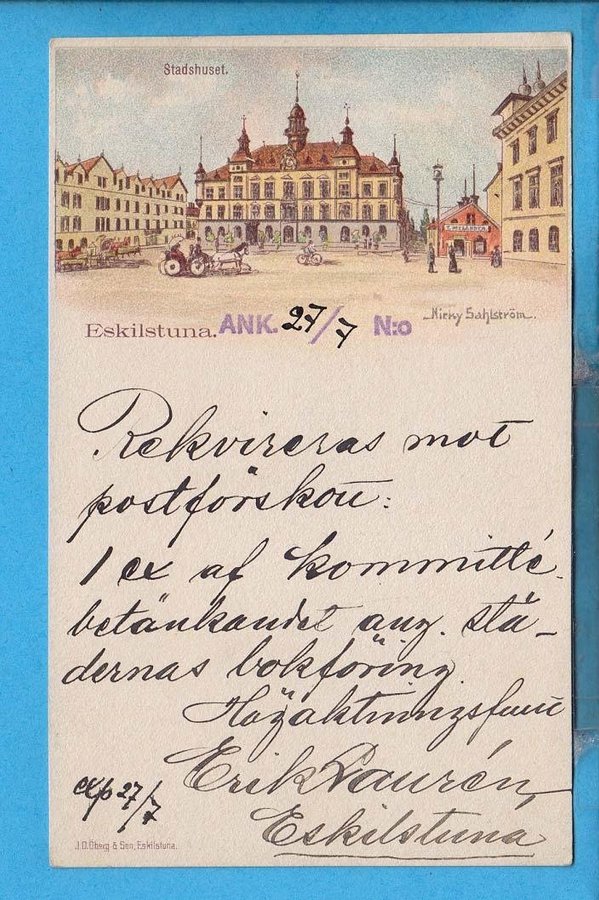 Stadshuset.
Eskilstuna. ANK. 27/7 N:o
Nicky Sahlström.
Rekvireras mot
postförskott:
1 ex af kommitté-
betänkandet ang. stä-
dernas bokföring
Högaktningsfullt
Erik Laurén,
Eskilstuna
exp 27/7
J.O. Öberg & Son, Eskilstuna.